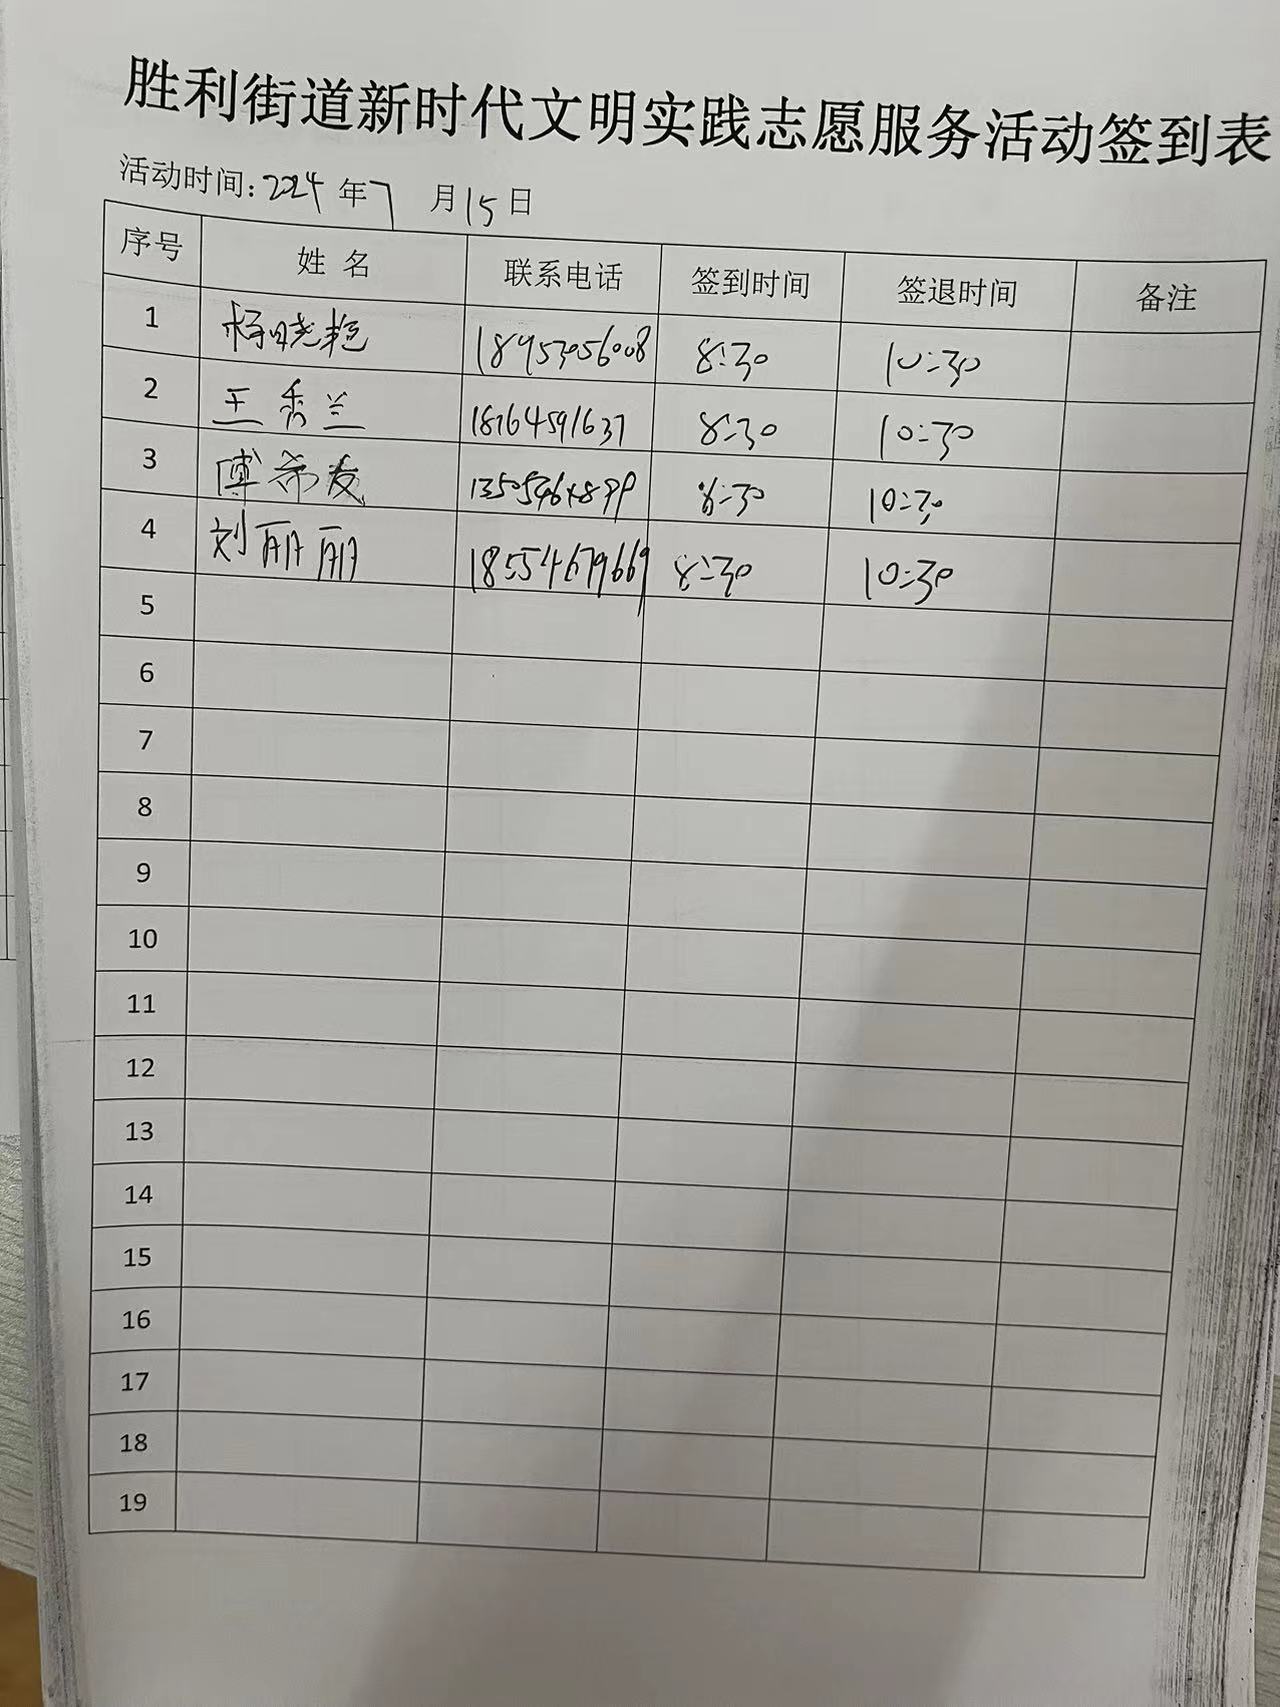 胜利街道新时代文明实践志愿服务活动签到表
活动时间:2024年7月15日
序号 姓名 联系电话 签到时间 签退时间 备注
1 杨晓艳 18953056008 8:30 10:30
2 王秀兰 18764591637 8:30 10:30
3 傅希友 8:30 10:30
4 刘丽丽 18554679669 8:30 10:30
5
6
7
8
9
10
11
12
13
14
15
16
17
18
19